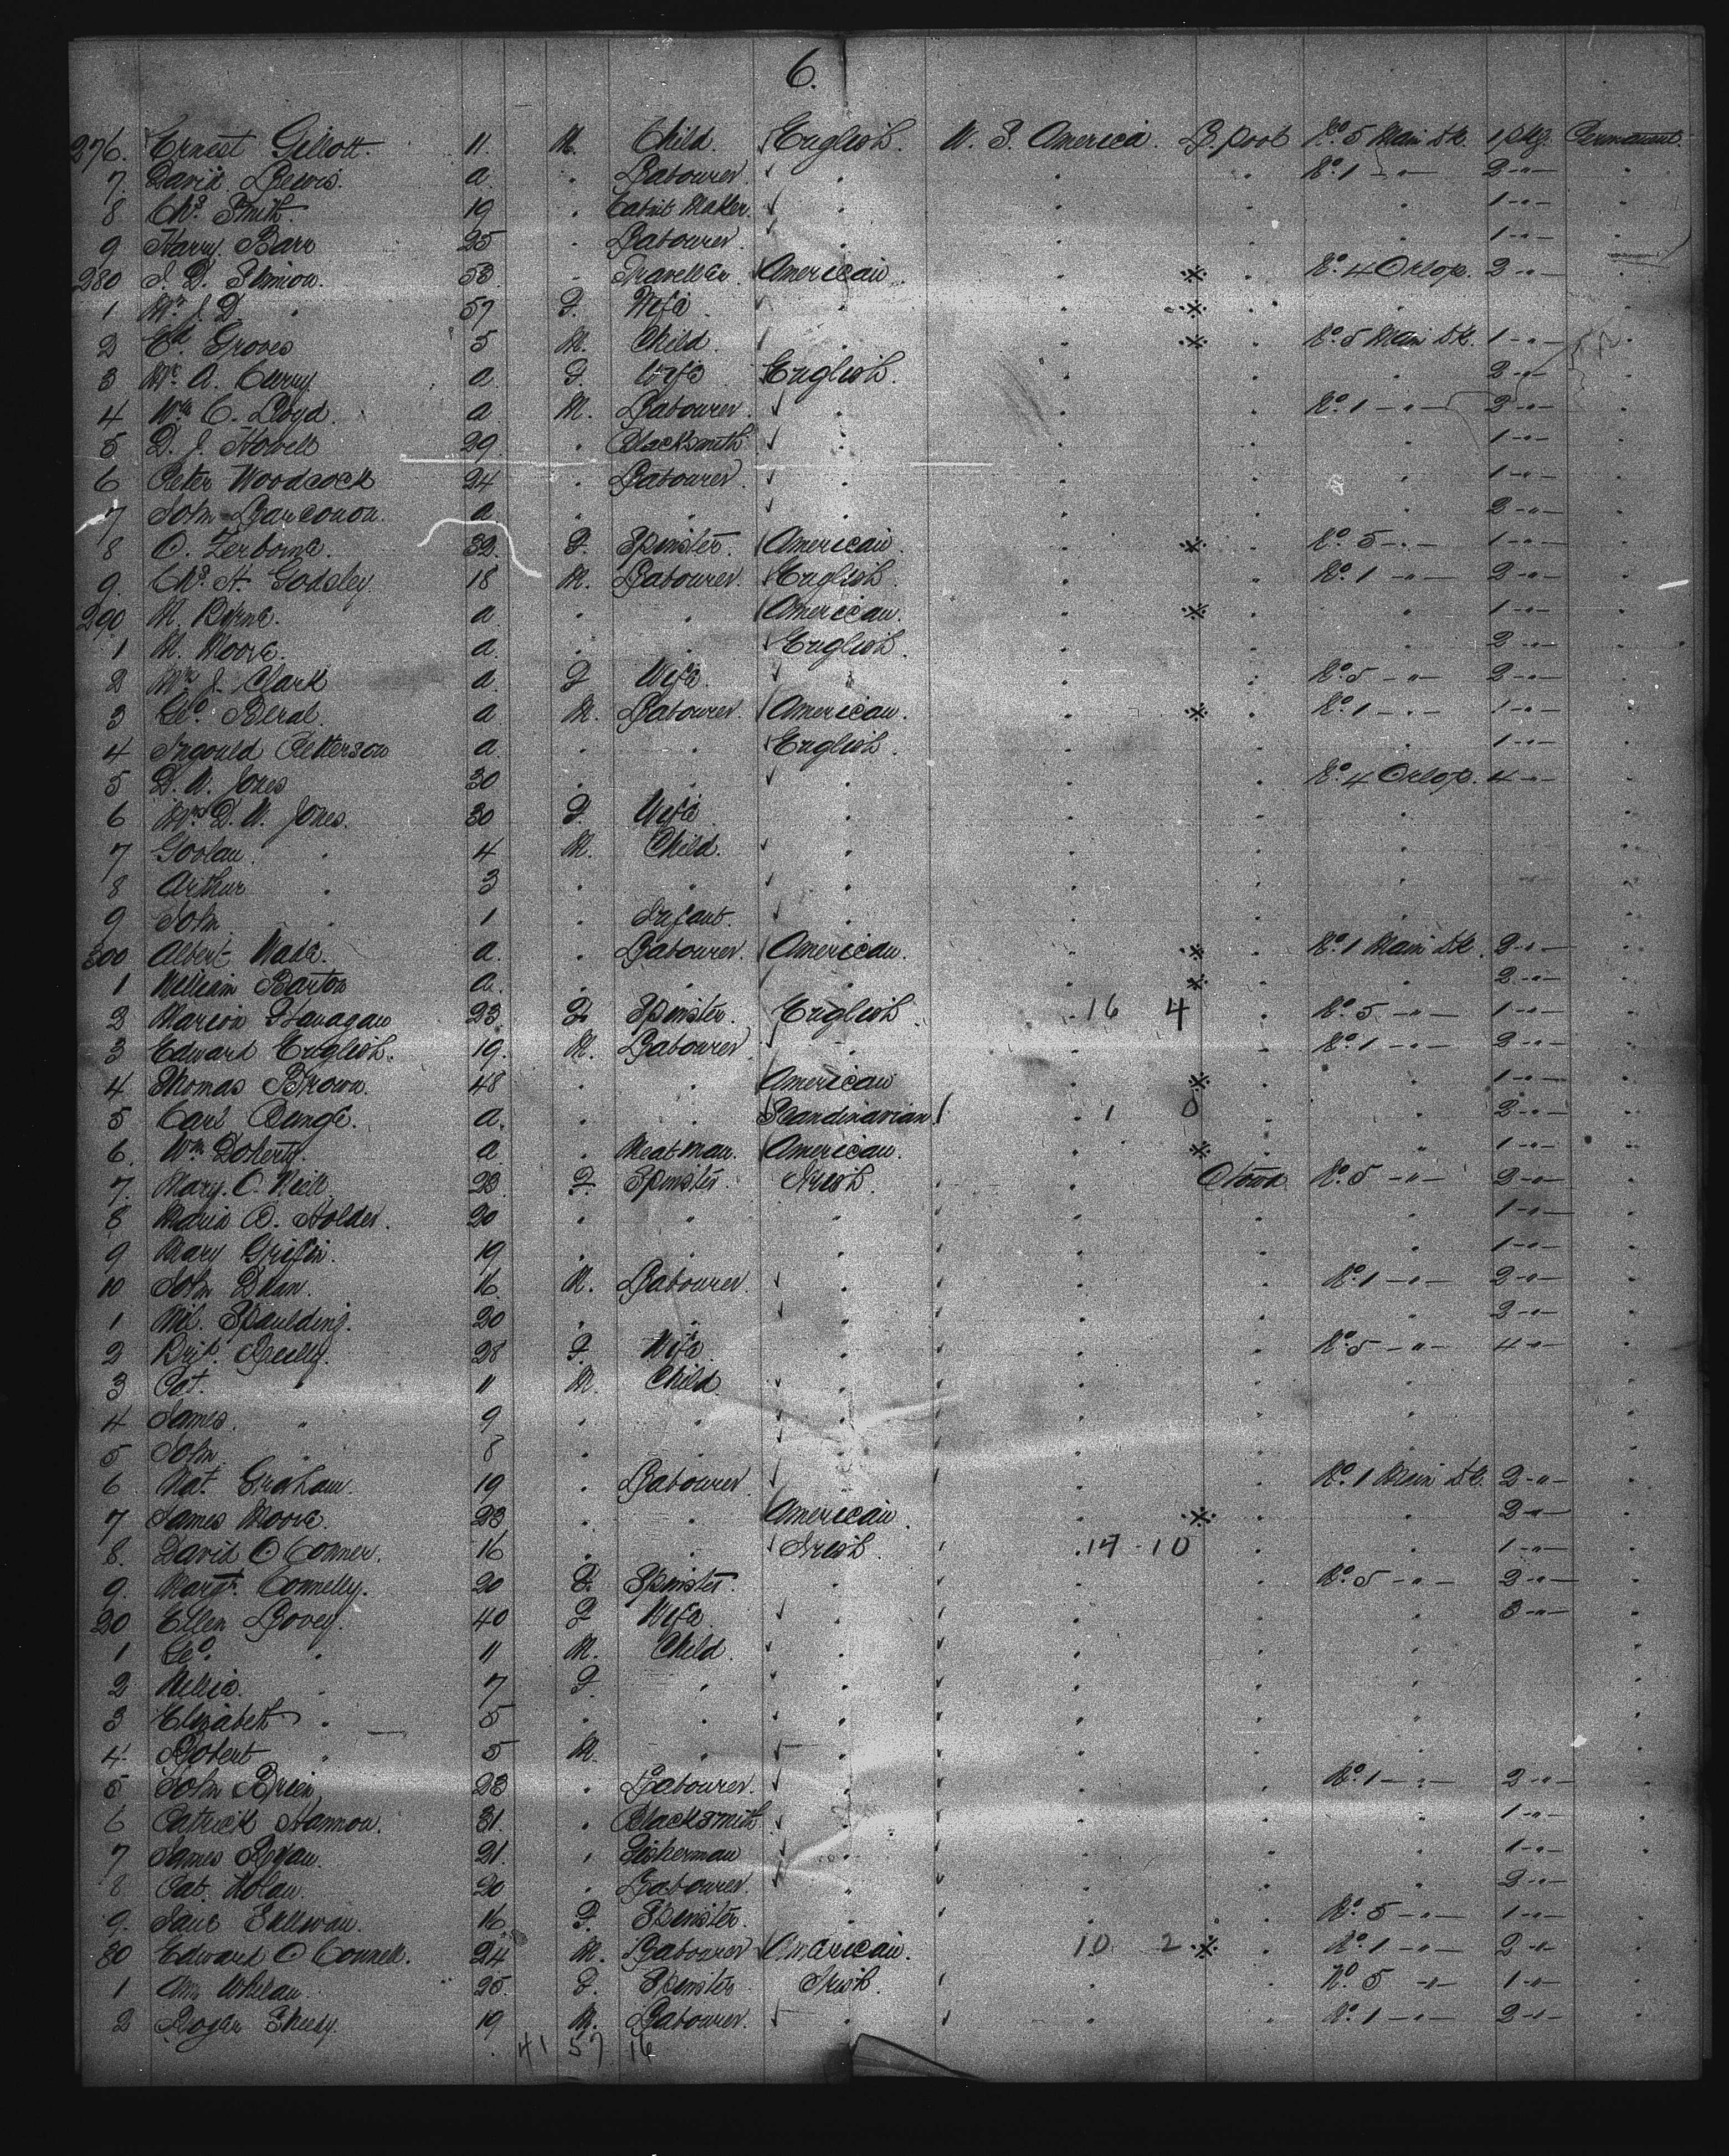 6.
276. Ernest Gillott. 11. M. Child. English. U. S. America. L.pool No. 5 Main Dk. 1 pkg. Permanent.
7. David Lewis. a. " Labourer. " " " No. 1 " 2 " "
8 Chs. Smith. 19 " Cabnt Maker. " " " " 1 " "
9 Harry Barr 25 " Labourer. " " " " 1 " "
280 J. D. Simion. 53. " Traveller. American " " No. 4 Orlop. 2 " "
1 Mrs. J. D. " 57 F. Wife " " " "
2 Ed. Groves 5 M. Child. " " " No. 5 Main Dk. 1 " "
3 Mrs. A. Curry a. F. Wife English. " " " 2 " "
4 Wm. C. Lloyd. a M. Labourer. " " " No. 1 " 2 " "
5 D. J. Howell 29. " Blacksmith " " " " 1 " "
6 Peter Woodcock 24 " Labourer. " " " " 1 " "
7 John a. " " " " " " 2 " "
8 O. Zerboma. 32. F. Spinster. American. " " No. 5 " 1 " "
9. Chs. H. Godsley. 18 M. Labourer. English. " " No. 1 " 2 " "
290 M. Byrne. a " " American. " " " 1 " "
1 M. Moore. a. " " English. " " " 2 " "
2 Mrs. J. Clark a. F Wife. " " " No. 5 " 2 " "
3 Geo. a M. Labourer. American. " " No. 1 " 1 " "
4 Ingould Petterson a. " " English. " " " 1 " "
5 D. W. Jones 30 " " " " " No. 4 Orlop. 4 " "
6 Mrs. D. W. Jones. 30 F. Wife. " " " " "
7 " 4 M. Child. " " " " "
8 Arthur " 3 " " " " " " "
9 John " 1 " Infant. " " " " "
300 Albert Wade. a. " Labourer. American. " " No. 1 Main Dk. 2 " "
1 William Barton a. " " " " " " 2 " "
2 Marion Flanagan 23. F. Spinster. English. 16 4 " No. 5 " 1 " "
3 Edward English. 19. M. Labourer. " " " No. 1 " 2 " "
4 Thomas Brown. 48 " " American " " " 1 " "
5 Carl Bunge. a. " " Scandinavian 1 0 " " 2 " "
6. Wm. Doherty. a " Meatman. American. " " " 1 " "
7. Mary. O. Neill. 23. F. Spinster. Irish. " Qtown No. 5 " 2 " "
8 Maria A. Holder. 20 " " " " " " 1 " "
9 Mary Grifin. 19 " " " " " " 1 " "
10 John Dean. 16. M. Labourer. " " " No. 1 " 2 " "
1 Wil. Spaulding. 20 " " " " " " 2 " "
2 Brit. Reilly. 28 F. Wife. " " " No. 5 " 4 " "
3 Pat. " 11 M. Child. " " " " "
4 James. " 9 " " " " " " "
5 John " 8 " " " " " " "
6 Nat. Graham. 19 " Labourer. " " " No. 1 Main Dk. 2 " "
7 James Moore. 23 " " American. " " " 2 " "
8. David O Conner. 16 " " Irish. 14 - 10 " " 1 " "
9. Margt. Connelly. 20 F. Spinster. " " " No. 5 " 2 " "
20 Ellen Bovey. 40 F Wife. " " " " 3 " "
1 Geo. " 11 M. Child. " " " " "
2 Nellie. " 7 F. " " " " " "
3 Elizabeth " 5 " " " " " " "
4. Robert " 5 M. " " " " " "
5 John Brien 23 " Labourer. " " " No. 1 " 2 " "
6 Patrick Hannon. 31. " Blacksmith " " " " 1 " "
7 James Ryan. 21. " Fisherman " " " " 1 " "
8. Pat. Nolan. 20 " Labourer. " " " " 2 " "
9. Jane Sullivan. 16. F. Spinster. " " " No. 5 " 1 " "
30 Edward O Connell. 24 M. Labourer American. 10 2 " No. 1 " 2 " "
1 Ann Whelan. 25. F. Spinster. Irish. " " No. 5 " 1 " "
2 Roger Sheedy. 19 M. Labourer. " " " No. 1 " 2 " "
41 57 16